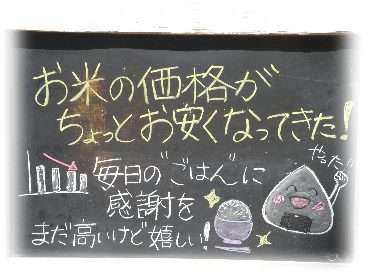 お米の価格が
ちょっとお安くなってきた!
やった!!
毎日の"ごはん"に
感謝を
まだ高いけど嬉しい!